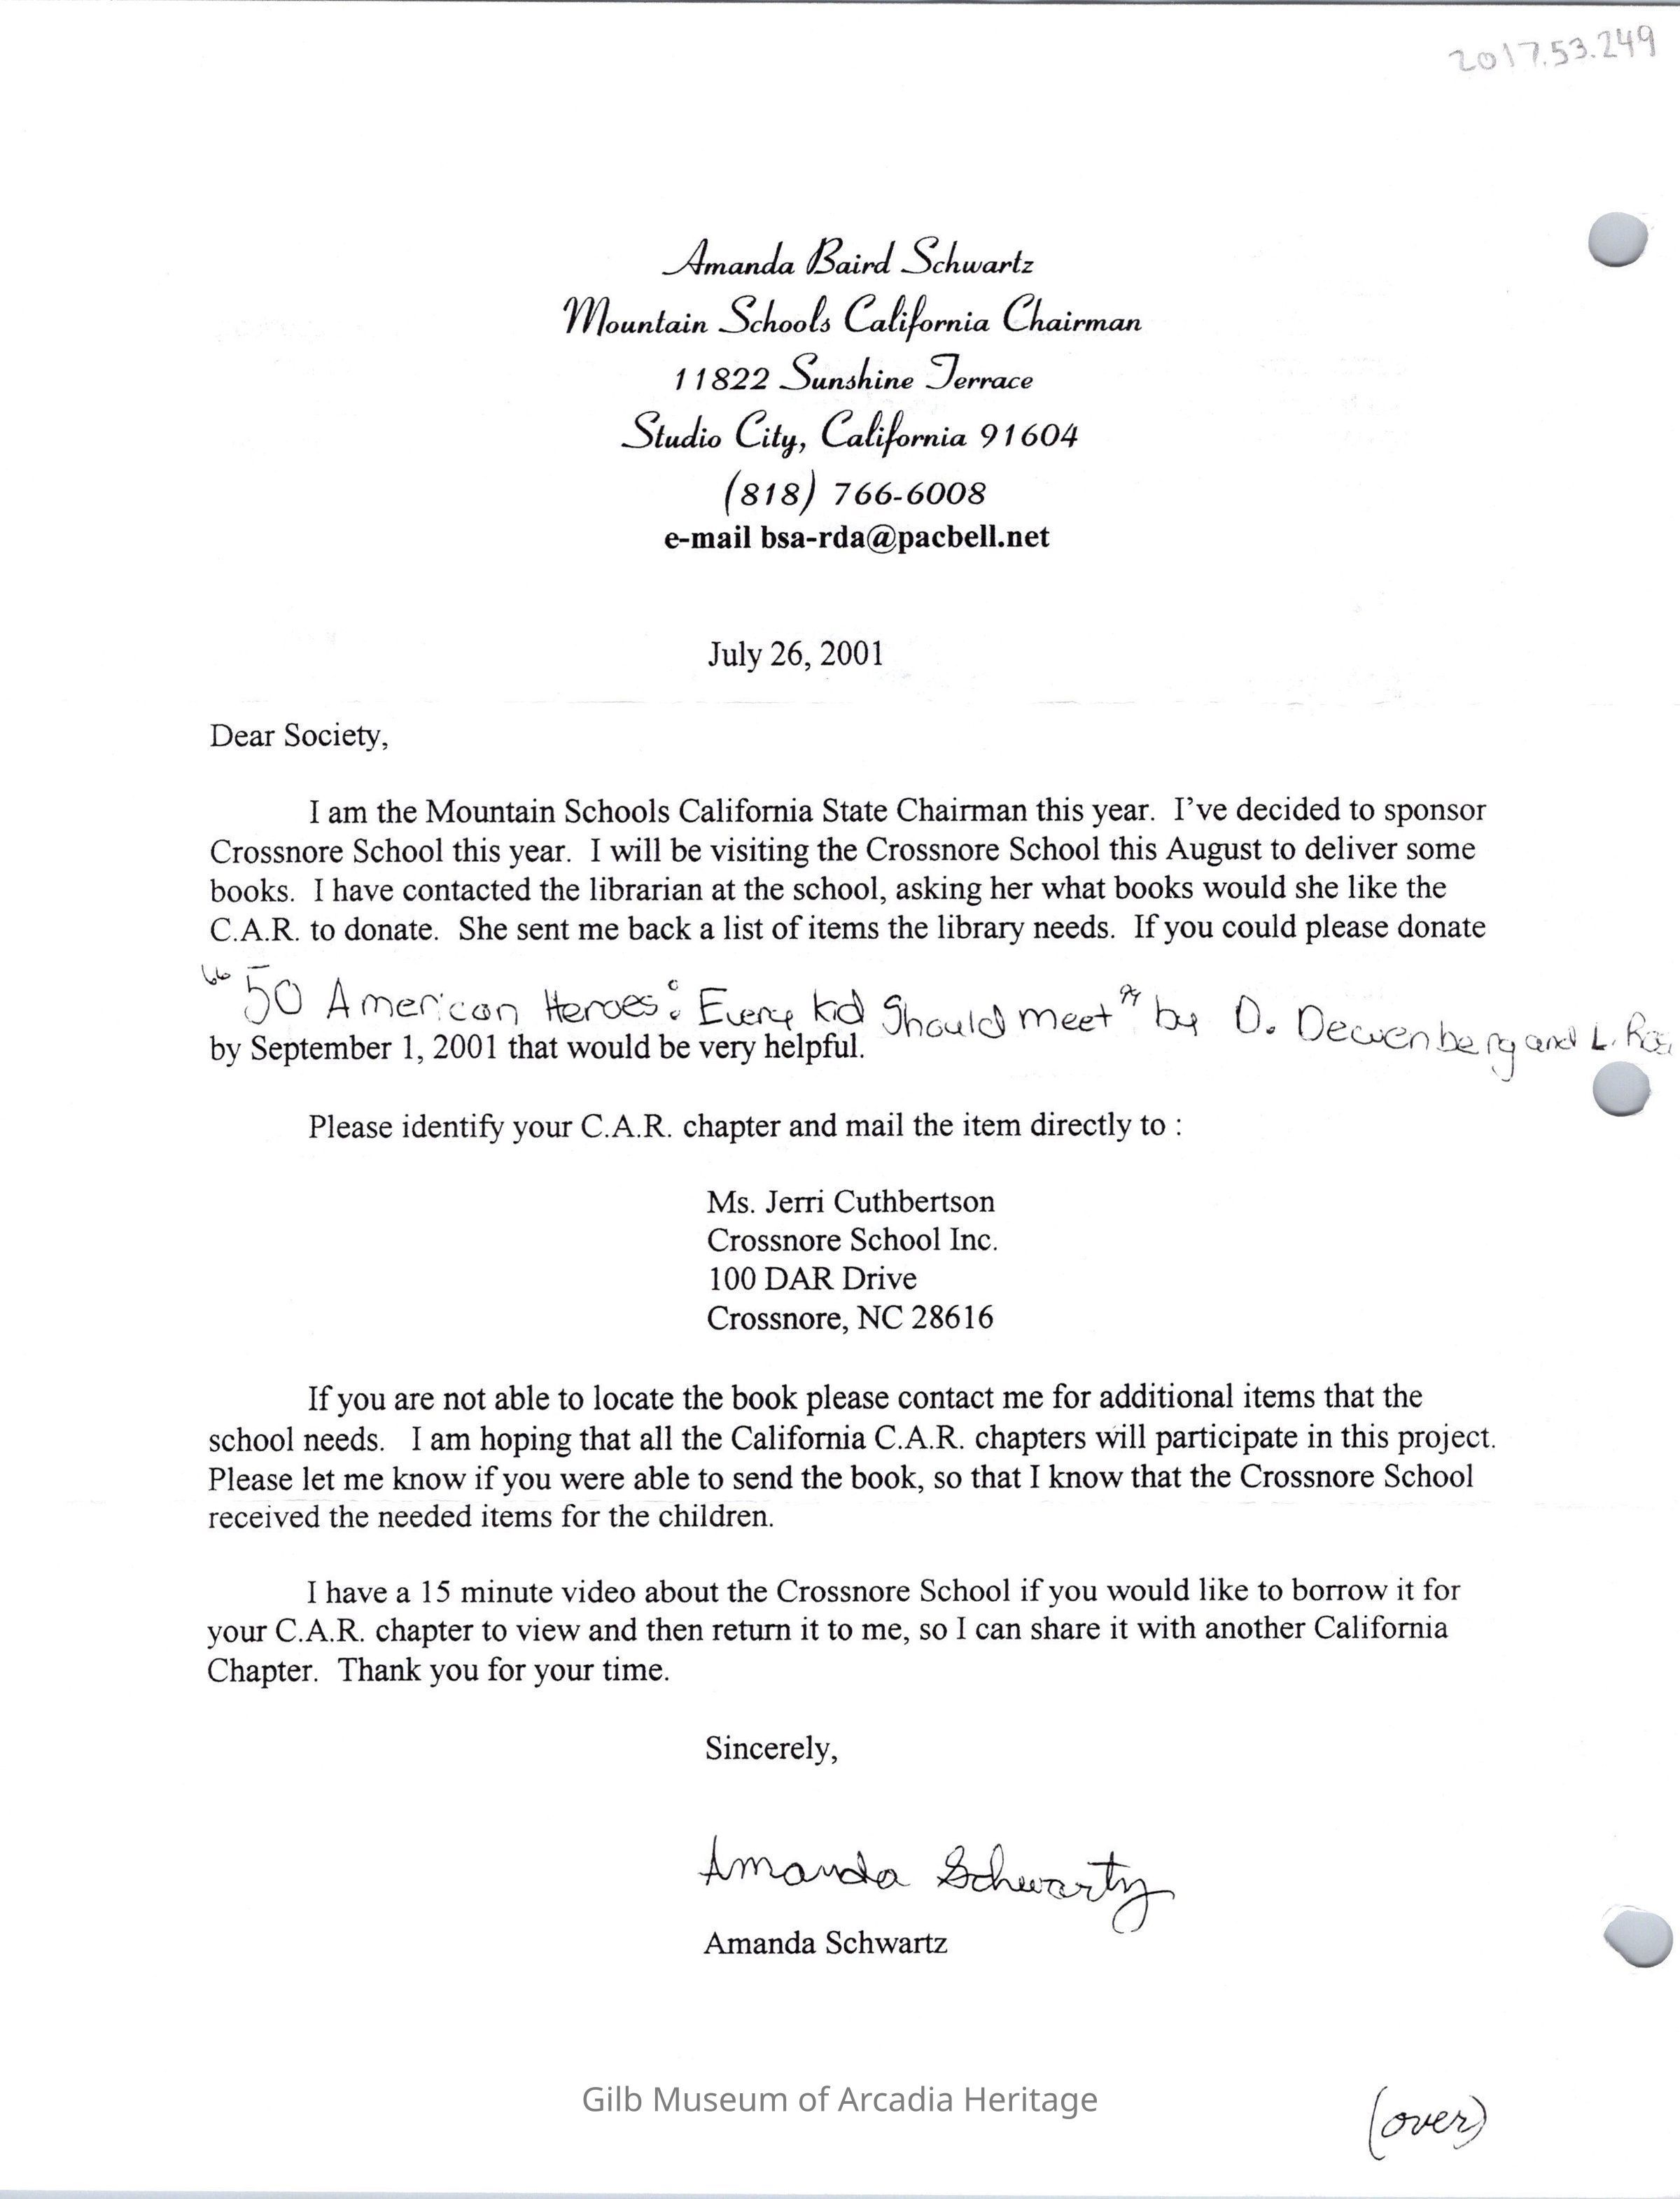 2017.53.249
Amanda Baird Schwartz
Mountain Schools California Chairman
11822 Sunshine Terrace
Studio City, California 91604
(818) 766-6008
e-mail bsa-rda@pacbell.net
July 26, 2001
Dear Society,
I am the Mountain Schools California State Chairman this year. I've decided to sponsor
Crossnore School this year. I will be visiting the Crossnore School this August to deliver some
books. I have contacted the librarian at the school, asking her what books would she like the
C.A.R. to donate. She sent me back a list of items the library needs. If you could please donate
"50 American Heroes: Every kid Should meet" by D. Dewenberg and L.
by September 1, 2001 that would be very helpful.
Please identify your C.A.R. chapter and mail the item directly to :
Ms. Jerri Cuthbertson
Crossnore School Inc.
100 DAR Drive
Crossnore, NC 28616
If you are not able to locate the book please contact me for additional items that the
school needs. I am hoping that all the California C.A.R. chapters will participate in this project.
Please let me know if you were able to send the book, so that I know that the Crossnore School
received the needed items for the children.
I have a 15 minute video about the Crossnore School if you would like to borrow it for
your C.A.R. chapter to view and then return it to me, so I can share it with another California
Chapter. Thank you for your time.
Sincerely,
Amanda Schwartz
Amanda Schwartz
Gilb Museum of Arcadia Heritage
(over)